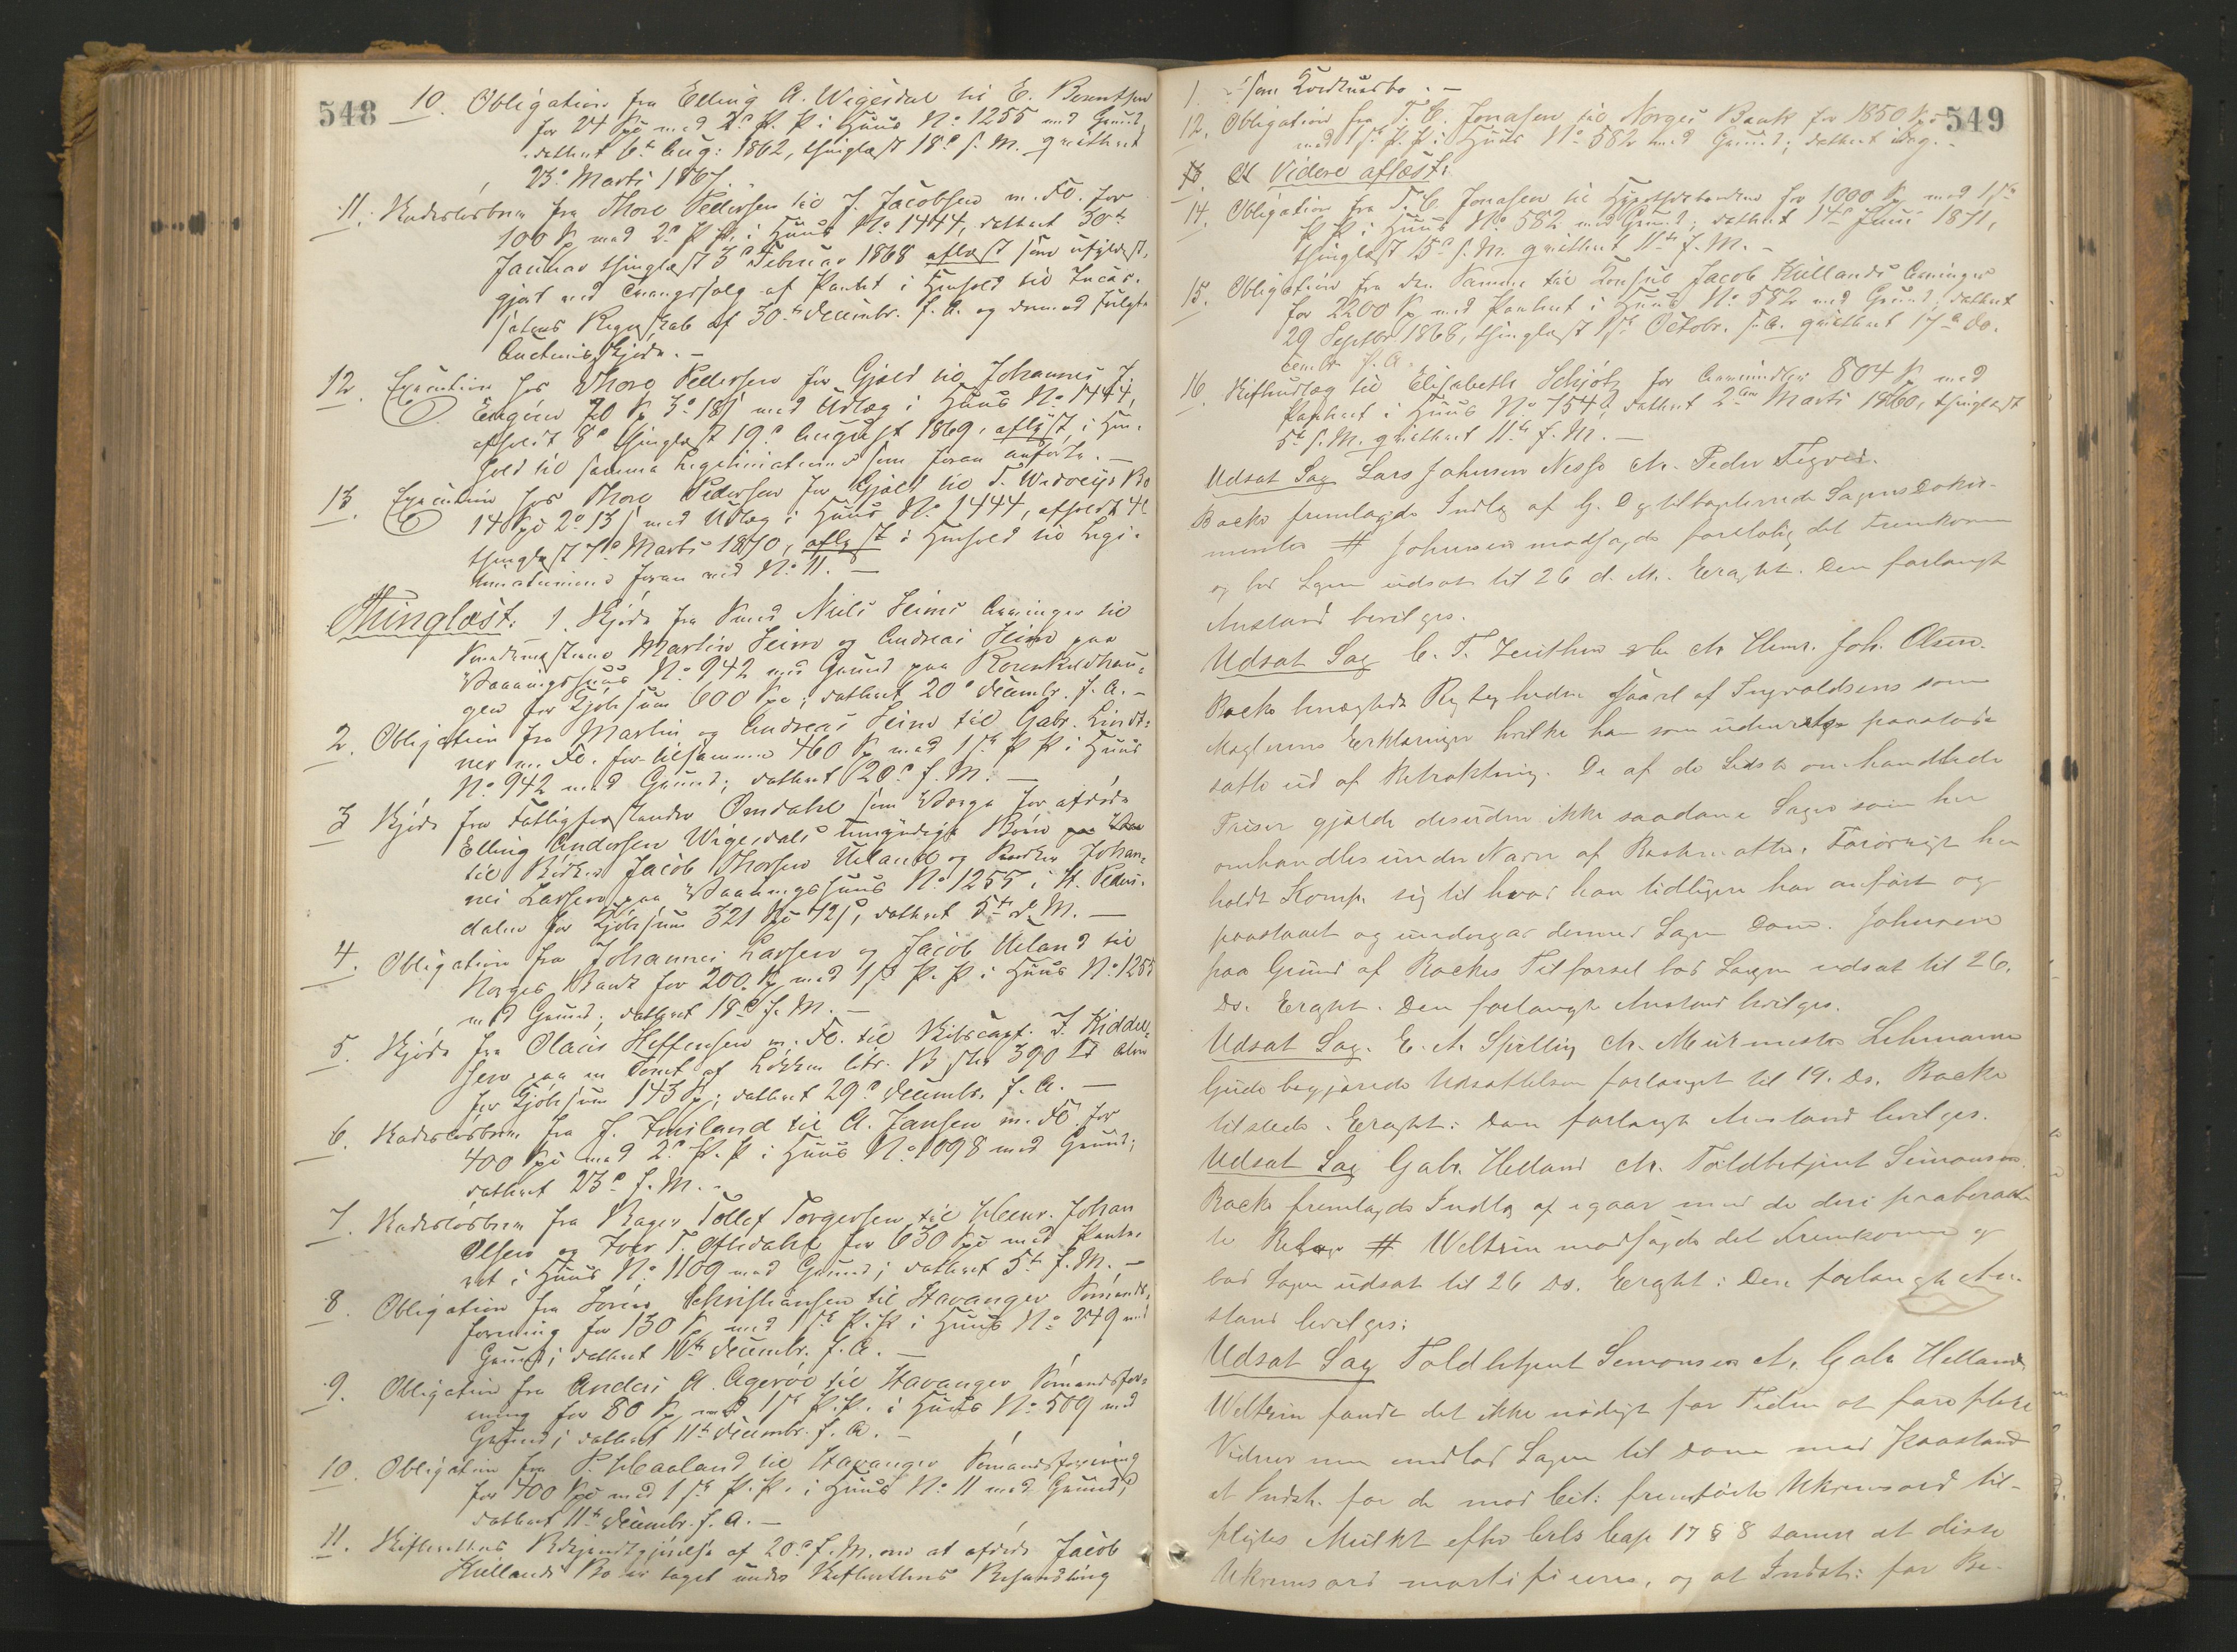 548
10. Obligation fra Elling A. Wigesdal til E. Berentsen
for 24 Spd med 2den P. P. i Huus No 1255 med Grund,
dateret 6te Aug: 1862, thinglæst 18de s. M. qvitteret
23de Marts 1867.
11. Kadesløsbrev fra Thore Pedersen til J. Jacobsen m. Fl. for
100 Sp med 2den P. Pt. i Huus No 1444, dateret 30te
Januar thinglæst 3de Februar 1868 aflæst som ufyldest-
gjort ved Tvangssalg af Pantet i Henhold til Incas-
sators Regnskab af 30te Decembr. f. A. og dermed fulgte
Auctionsskjøde. —
12. Execution hos Thore Pedersen for Gjæld til Johannes J.
20 Sp 3 18 s med Udlæg i Huus No 1444,
afholdt 8de thinglæst 19de August 1869, aflyst i Hen-
hold til samme Legitimationer som foran anførte. —
13. Execution hos Thore Pedersen for Gjæld til T. Bo
14 Spd 2 13 s med Udlæg i Huus No 1444, afholdt 4de
thinglæst 7de Marts 1870, aflyst i Henhold til Legi-
timationerne foran ved No 11. —
Thinglæst: 1. Skjøde fra Smed Niels Heims Arvinger til
Smedemestrene Martin Heim og Andreas Heim paa
Vaaningshuus No 942 med Grund paa Rosenkildhau-
gen for Kjøbesum 600 Spd; dateret 20de Decembr. f. A. —
2. Obligation fra Martin og Andreas Heim til Gabr. Lindt-
ner m. Fl. for tilsammen 460 Sp med 1ste P. Pt i Huus
No 942 med Grund; dateret 20de f. M. —
3 Skjøde fra Fattigforstander Omdahl som Værge for afdøde
Elling Andersen Wigesdals umyndige Børn
til Bødker Jacob Thorsen Ueland og Bødker Johan-
nes Larsen paa Vaaningshuus No 1255 i St. Peders-
dalen for Kjøbesum 321 Spd 72 s, dateret 5te d. M. —
4. Obligation fra Johannes Larsen og Jacob Ueland til
Norges Bank for 200 Sp med 1ste P. Pt i Huus No 1255
med Grund; dateret 18de f. M. —
5. Skjøde fra Olaus Helliesen m. Fl. til Skibscapt. J. Kiddel-
sen paa en Tomt af Løkken litr. B stor 390 □ Alen
for Kjøbesum 143 Sp; dateret 29de Decembr. f. A. —
6. Kadesløsbrev fra J. til A. Jansen m. Fl. for
400 Spd med 2den P. P. i Huus No 1098 med Grund;
dateret 23de f. M. —
7. Kadesløsbrev fra Bager Tollef Torgersen til Henr. Johan
Olsen og Iver T. for 630 Spd med Pante-
ret i Huus No 1109 med Grund; dateret 5te f. M. —
8. Obligation fra Søren Christiansen til Stavanger Sømands-
forening for 130 Sp med 1ste P. Pt i Huus No 249 med
Grund; dateret 11te Decembr. f. A. —
9. Obligation fra Anders A. Agerøe til Stavanger Sømandsfor-
ening for 80 Sp med 1ste P. P. i Huus No 509 med
Grund; dateret 11te Decembr. f. A. —
10. Obligation fra P. Haaland til Stavanger Sømandsforening
for 400 Spd med 1ste P. P. i Huus No 11 med Grund;
dateret 11te Decembr. f. A. —
11. Skifterettens Bekjendtgjørelse af 20de f. M. om at afdøde Jacob
Kiellands Bo er taget under Skifterettens Behandling
549
1. som
12. Obligation fra T. C. Jonasen til Norges Bank for 1850 Spd
med 1ste P. P. i Huus No 582 med Grund; dateret idag. —
13. Videre aflæst:
14. Obligation fra T. C. Jonasen til Hypothekbanken for 1000 Sp med 1ste
P. P. i Huus No 582 med Grund; dateret 14de Juni 1871,
thinglæst 15de s. M. qvitteret 11te f. M. —
15. Obligation fra den Samme til Consul Jacob Kiellands Arvinger
for 2200 Sp med Panteret i Huus No 582 med Grund; dateret
29 Septbr 1868, thinglæst 1ste Octobr. s. A. qvitteret 17de De-
cembr. f. A.
16. Skifteudlæg til Elisabeth Schjøtz for Arvemidler 804 Sp med
Panteret i Huus No 754; dateret 2den Marts 1860, thinglæst
5te s. M. qvitteret 11te f. M. —
Udsat Sag Lars Johnsen Nesse ctr. Peder Tegred.
Backe fremlagde Indlæg af G. D og tilbageleverede Sagens Doku-
menter # Johnsen modsagde foreløbig det Fremkomne
og bad Sagen udsat til 26 d. M. Eragtet. Den forlangte
Anstand bevilges.
Udsat Sag C. T. Zeuthen ctr Henr. Joh. Olsen.
Backe benægtede Rigtigheden af Ingvaldsens som
Mæglerens Erklæringer hvilke han som paastod
satte ud af Betraktning. De af de Sidste omhandlede
Priser gjælde desuden ikke saadanne Sager som her
omhandles under Navn af Bastmatter. Forøvrigt hen
holdt Komp. sig til hvad han tidligere har anført og
paastaaet og indlod dermed Sagen Dom. Johnsen
paa Grund af Backes Tilførsel bad Sagen udsat til 26.
ds. Eragtet. Den forlangte Anstand bevilges.
Udsat Sag. E. A. Spilling ctr. Muurmester Lehmann
Gude begjærede Udsættelsen forlænget til 19. ds. Backe
tilstede. Eragtet: Den forlangte Anstand bevilges.
Udsat Sag Gabr. Helland ctr. Toldbetjent Simonsen.
Backe fremlagde Indlæg af igaar med de deri paaberaab-
te Bilage # Weltzin modsagde det Fremkomne og
bad Sagen udsat til 26 ds. Eragtet: Den forlangte An-
stand bevilges:
Udsat Sag Toldbetjent Simonsen ctr. Gabr Helland
Weltzin fandt det ikke nødigt for Tiden at føre flere
Vidner men indlod Sagen til Dom med Paastand
at Indst. for de mod Cit: fremførte Ukvemsord til-
pligtes Mulkt efter Crls Cap 17 § 8 samt at disse
Ukvemsord mortificeres, og at Indst: for Be-